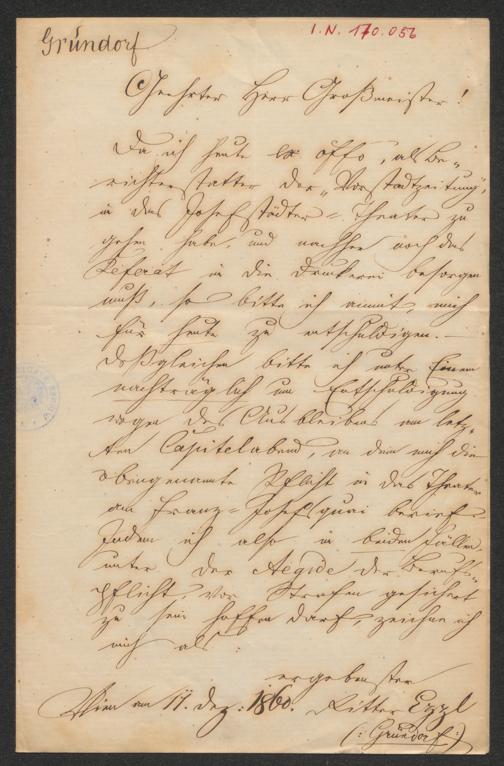 Gründorf
I.N. 170.056
Geehrter Herr Großmeister!
Da ich heute ex offo, als Be-
richterstatter der „Vorstadtzeitung",
in das Josefstädter-Theater zu
gehen habe, und nachher noch das
Referat in die Druckerei besorgen
muß, so bitte ich anmit, mich
für heute zu entschuldigen. —
Deßgleichen bitte ich unter Einem
nachträglich um Entschuldigung
wegen des Ausbleibens am letz-
ten Capitelabend, an dem mich die
obengenannte Pflicht in das Theater
am Franz-Josefsquai berief.
Indem ich also in beiden Fällen
unter der Aegide der Berufs-
pflicht, vor Strafen gesichert
zu sein hoffen darf, zeichne ich
mich als:
ergebenster
Wien am 17. Dez: 1860. Ritter Ezzl
(: Gründorf :)